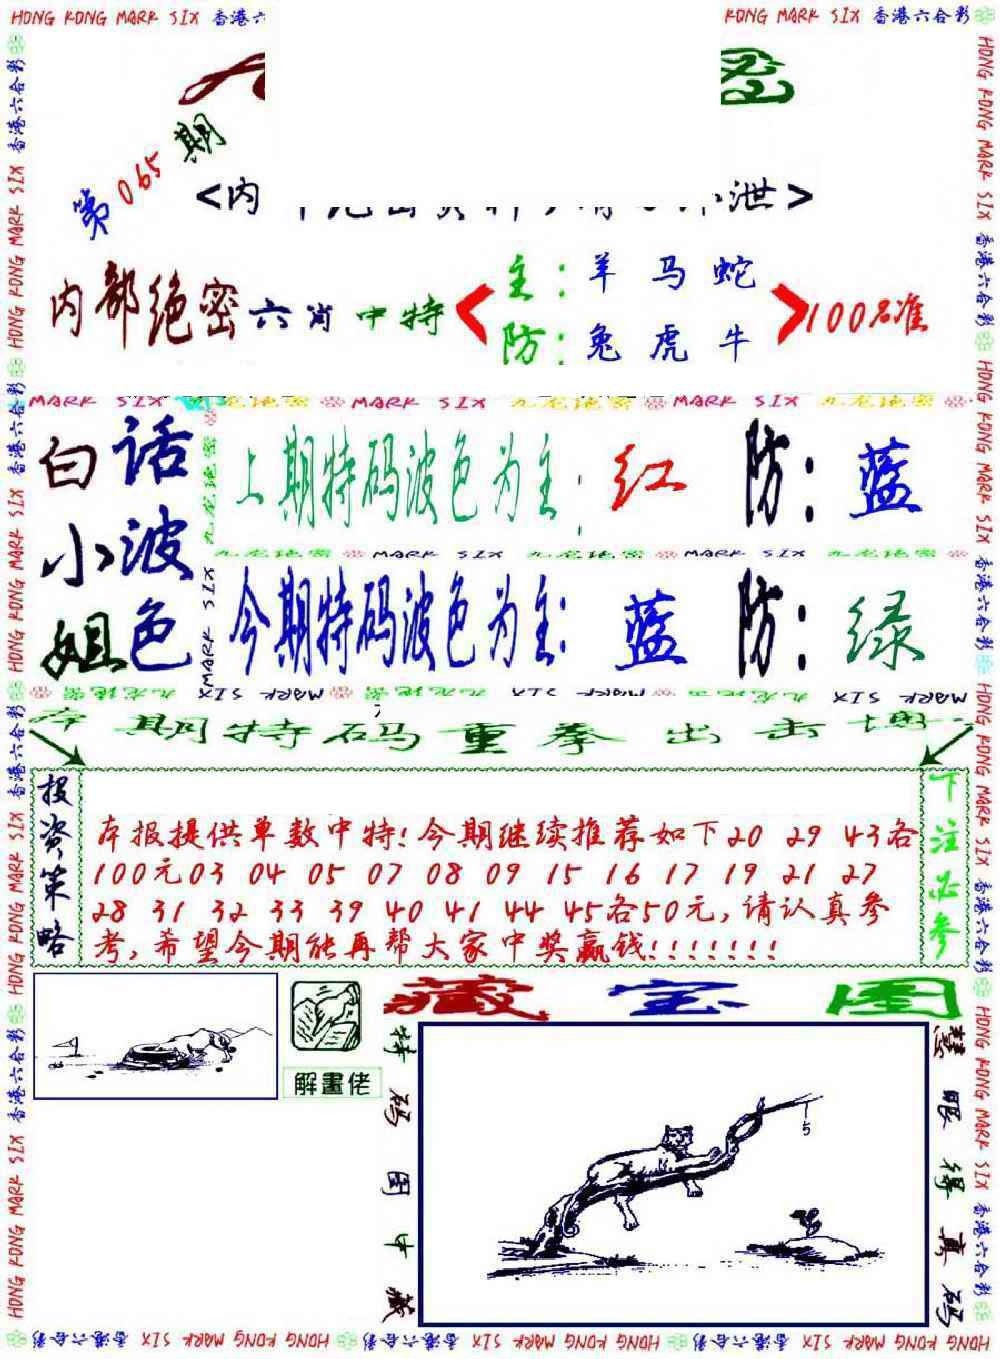 HONG KONG MARK SIX 香港六
KONG MARK SIX 香港六合彩
密
第065期
<内
泄>
内部绝密六肖中特
主：羊 马 蛇
防：兔 虎 牛
100%准
MARK SIX 九龙绝密 MARK SIX 九龙绝密 MARK SIX 九龙绝密
白小姐
话波色
上期特码波色为主：红 防：蓝
九龙绝密 MARK SIX 九龙绝密 MARK SIX 九龙绝密
今期特码波色为主：蓝 防：绿
本期特码重拳出击
投资策略
本报提供单数中特！今期继续推荐如下20 29 43各
100元03 04 05 07 08 09 15 16 17 19 21 27
28 31 32 33 39 40 41 44 45各50元，请认真参
考，希望今期能再帮大家中奖赢钱！！！！！！！
下注必参
解畫佬
藏宝图
特码图中藏
慧眼得真码
5
HONG KONG MARK SIX 香港六合彩